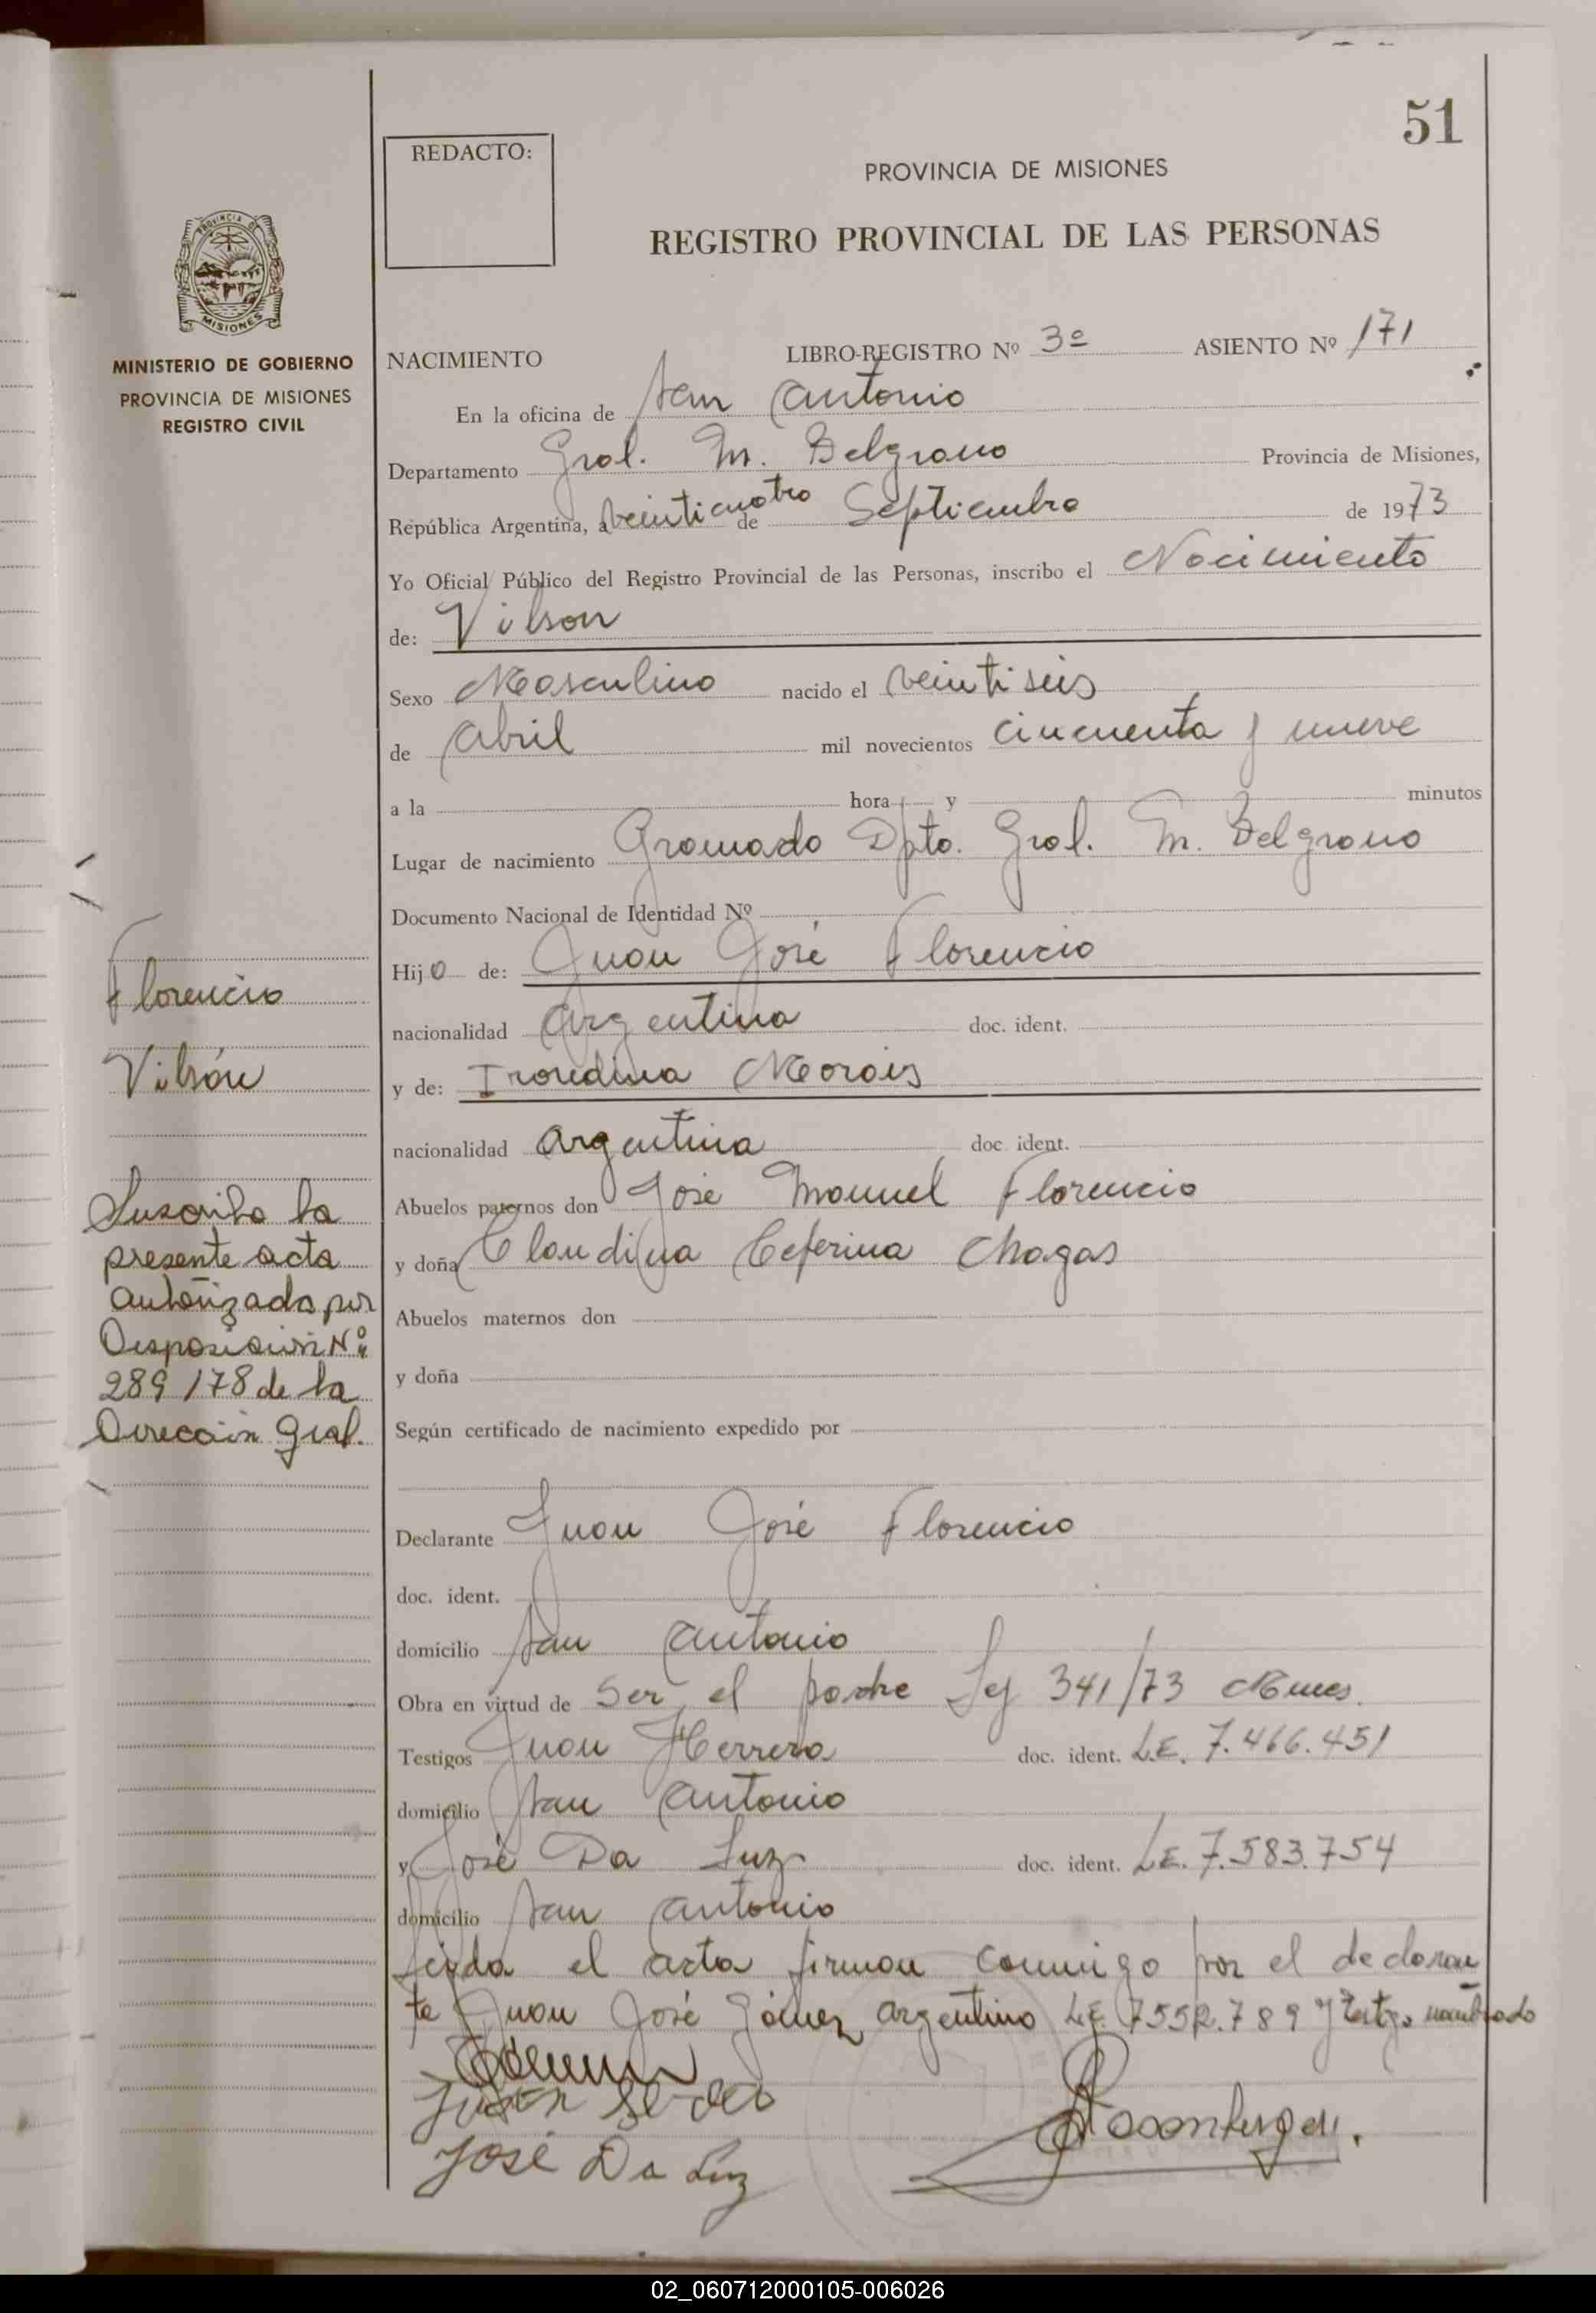 51
REDACTO:
PROVINCIA DE MISIONES
REGISTRO PROVINCIAL DE LAS PERSONAS
PROVINCIA DE
MISIONES
MINISTERIO DE GOBIERNO
PROVINCIA DE MISIONES
REGISTRO CIVIL
NACIMIENTO LIBRO-REGISTRO Nº 3º ASIENTO Nº 171
En la oficina de San Antonio
Departamento Gral. M. Belgrano Provincia de Misiones,
República Argentina, a veinticuatro de Septiembre de 1973
Yo Oficial Público del Registro Provincial de las Personas, inscribo el Nacimiento
de: Vilson
Sexo Masculino nacido el veintiseis
de abril mil novecientos cincuenta y nueve
a la hora y minutos
Lugar de nacimiento Gramado Dpto. Gral. M. Belgrano
Documento Nacional de Identidad Nº
Hijo de: Juan José Florencio
nacionalidad Argentina doc. ident.
y de: Irondina Morais
nacionalidad Argentina doc. ident.
Abuelos paternos don José Manuel Florencio
y doña Claudina Ceferina Chagas
Abuelos maternos don
y doña
Según certificado de nacimiento expedido por
Declarante Juan José Florencio
doc. ident.
domicilio San Antonio
Obra en virtud de Ser el padre Ley 341/73
Testigos Juan Herrera doc. ident. L.E. 7.466.451
domicilio San Antonio
y José Da Luz doc. ident. L.E. 7.583.754
domicilio San Antonio
Leida el acta firman conmigo por el declaran
te Juan José Gómez argentino L.E. 7552.789 y testigo nombrado
José Da Luz
Florencio
Vilsón
Suscribo la
presente acta
autorizada por
Disposición Nº
289/78 de la
Dirección Gral.
02_060712000105-006026